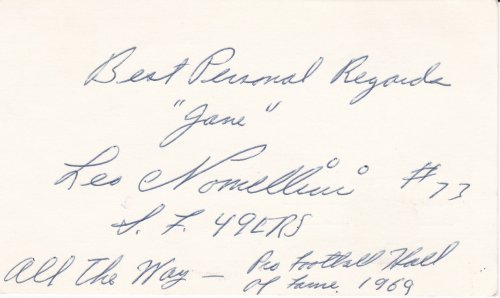 Best Personal Regards
"Jane"
Leo Nomellini #73
S. F. 49ERS
All The Way — Pro Football Hall
of Fame, 1969